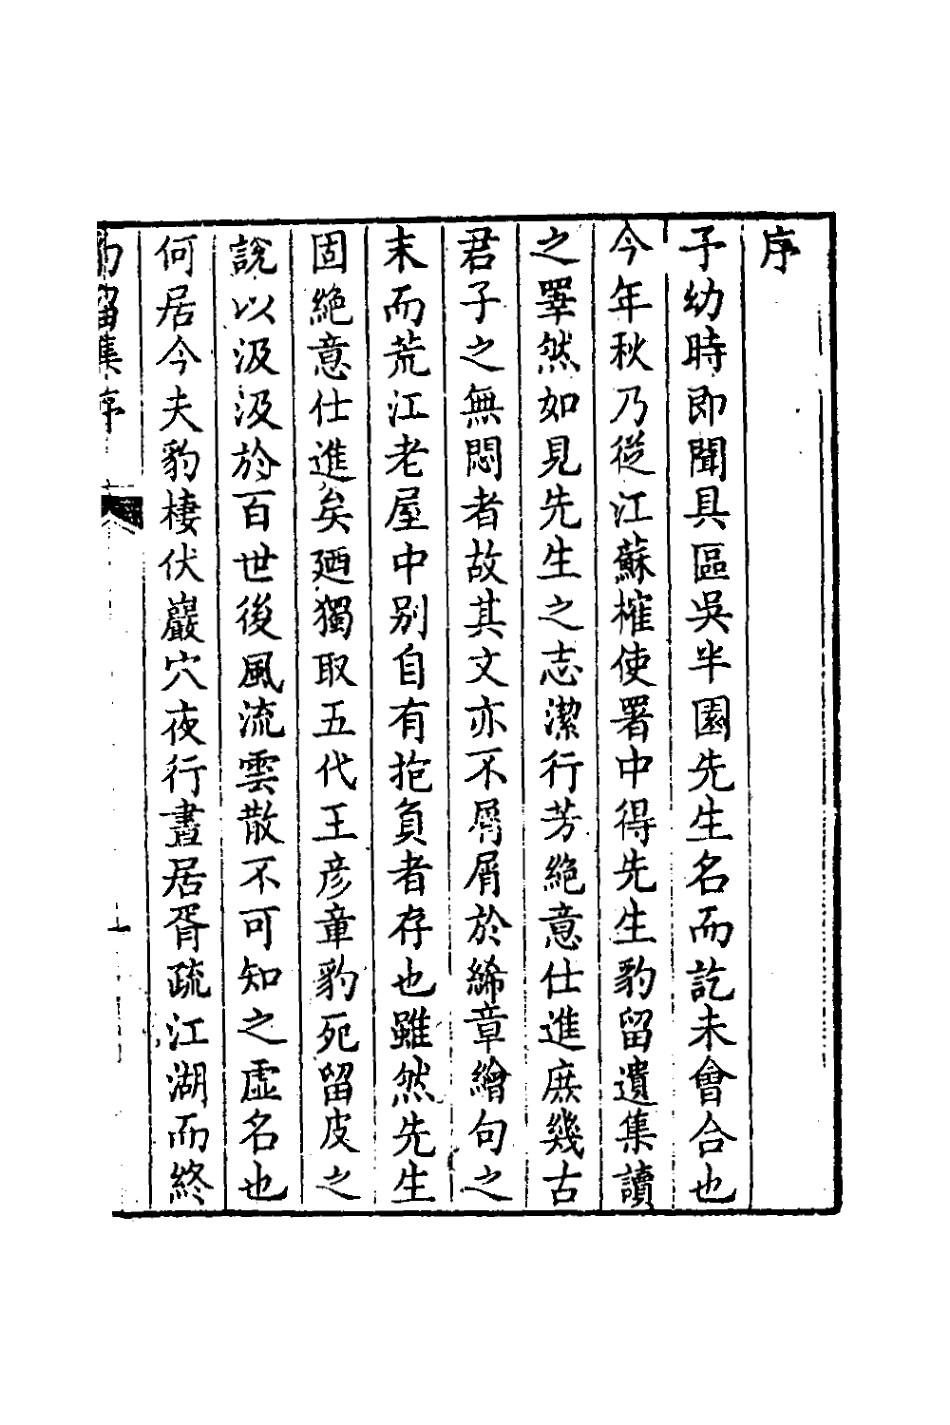 序
予幼時即聞具區吳半園先生名而訖未會合也
今年秋乃從江蘇榷使署中得先生豹留遺集讀
之睪然如見先生之志潔行芳絶意仕進庶幾古
君子之無悶者故其文亦不屑屑於絺章繪句之
末而荒江老屋中別自有抱負者存也雖然先生
固絶意仕進矣廼獨取五代王彥章豹死留皮之
說以汲汲於百世後風流雲散不可知之虛名也
何居今夫豹棲伏巖穴夜行晝居胥疏江湖而終
豹留集序
一